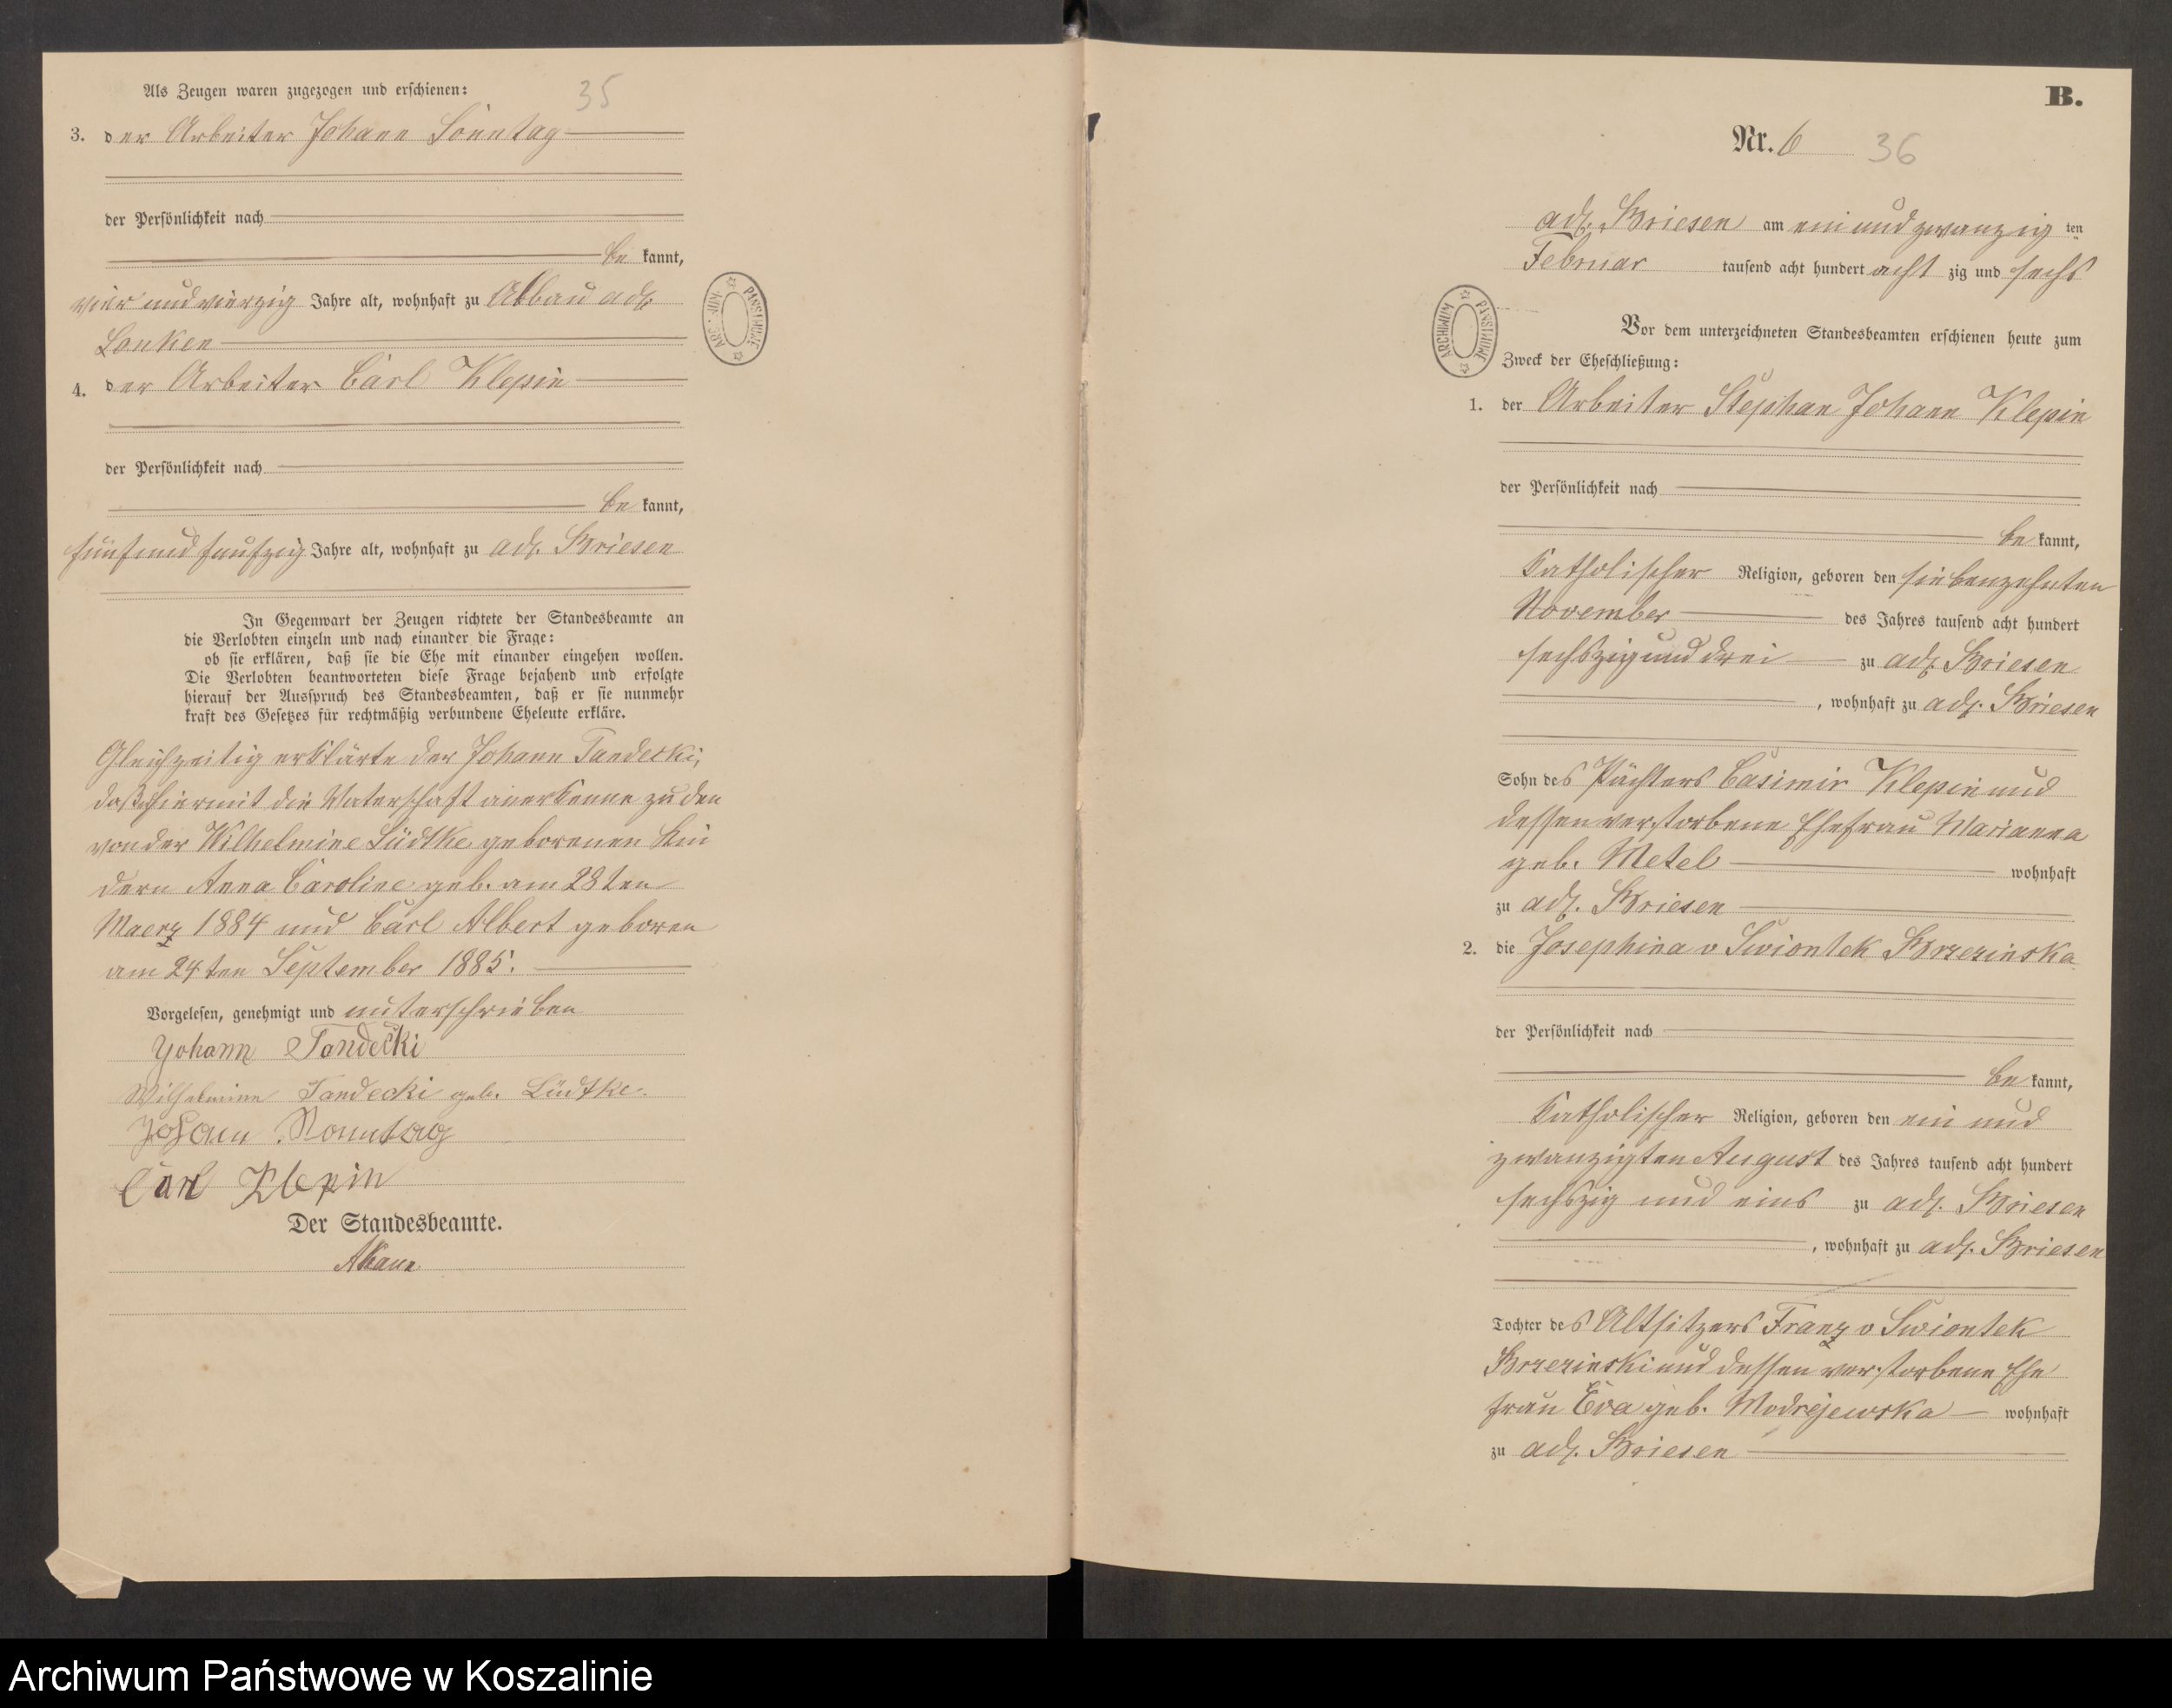 35
Als Zeugen waren zugezogen und erschienen:
3. der Arbeiter Johann Sonntag
der Persönlichkeit nach
be kannt,
vier und vierzig Jahre alt, wohnhaft zu Abbau adl.
Lonken
4. der Arbeiter Carl Klepin
der Persönlichkeit nach
be kannt,
fünf und fünfzig Jahre alt, wohnhaft zu adl. Briesen
In Gegenwart der Zeugen richtete der Standesbeamte an
die Verlobten einzeln und nach einander die Frage:
ob sie erklären, daß sie die Ehe mit einander eingehen wollen.
Die Verlobten beantworteten diese Frage bejahend und erfolgte
hierauf der Ausspruch des Standesbeamten, daß er sie nunmehr
kraft des Gesetzes für rechtmäßig verbundene Eheleute erkläre.
Gleichzeitig erklärte der Johann Tandecki,
daß hiermit die Vaterschaft anerkenne zu den
von der Wilhelmine Lüdtke geborenen Kin
dern Anna Caroline geb. am 28ten
Maerz 1884 und Carl Albert geboren
am 24ten September 1885.
Vorgelesen, genehmigt und unterschrieben
Johann Tandecki
Wilhelmine Tandecki geb. Lüdtke.
Johann Sonntag
Carl Klepin
Der Standesbeamte.
B.
Nr. 6 36
adl. Briesen am ein und zwanzig ten
Februar tausend acht hundert acht zig und sechs
Vor dem unterzeichneten Standesbeamten erschienen heute zum
Zweck der Eheschließung:
1. der Arbeiter Stephan Johann Klepin
der Persönlichkeit nach
be kannt,
katholischer Religion, geboren den siebenzehnten
November des Jahres tausend acht hundert
sechszig und drei zu adl. Briesen
, wohnhaft zu adl. Briesen
Sohn des Pächters Casimir Klepin und
dessen verstorbene Ehefrau Marianna
geb. Metel wohnhaft
zu adl. Briesen
2. die Josephina v Swiontek Brzezinska
der Persönlichkeit nach
be kannt,
katholischer Religion, geboren den ein und
zwanzigten August des Jahres tausend acht hundert
sechszig und eins zu adl. Briesen
, wohnhaft zu adl. Briesen
Tochter des Altsitzers Franz v Swiontek
Brzezinski und dessen verstorbene Ehe
frau Eva geb. Modrejewska wohnhaft
zu adl. Briesen
ARCHIWUM PAŃSTWOWE
ARCHIWUM PAŃSTWOWE
Archiwum Państwowe w Koszalinie